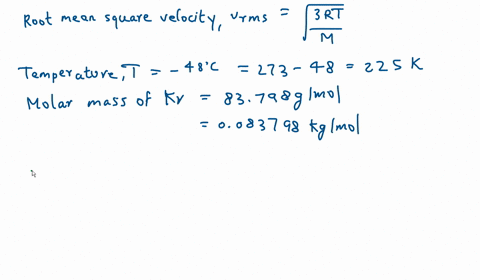 Root mean square velocity, vrms = √(3RT/M)
Temperature, T = -48°C = 273 - 48 = 225 K
Molar mass of Kr = 83.798 g/mol
= 0.083798 kg/mol